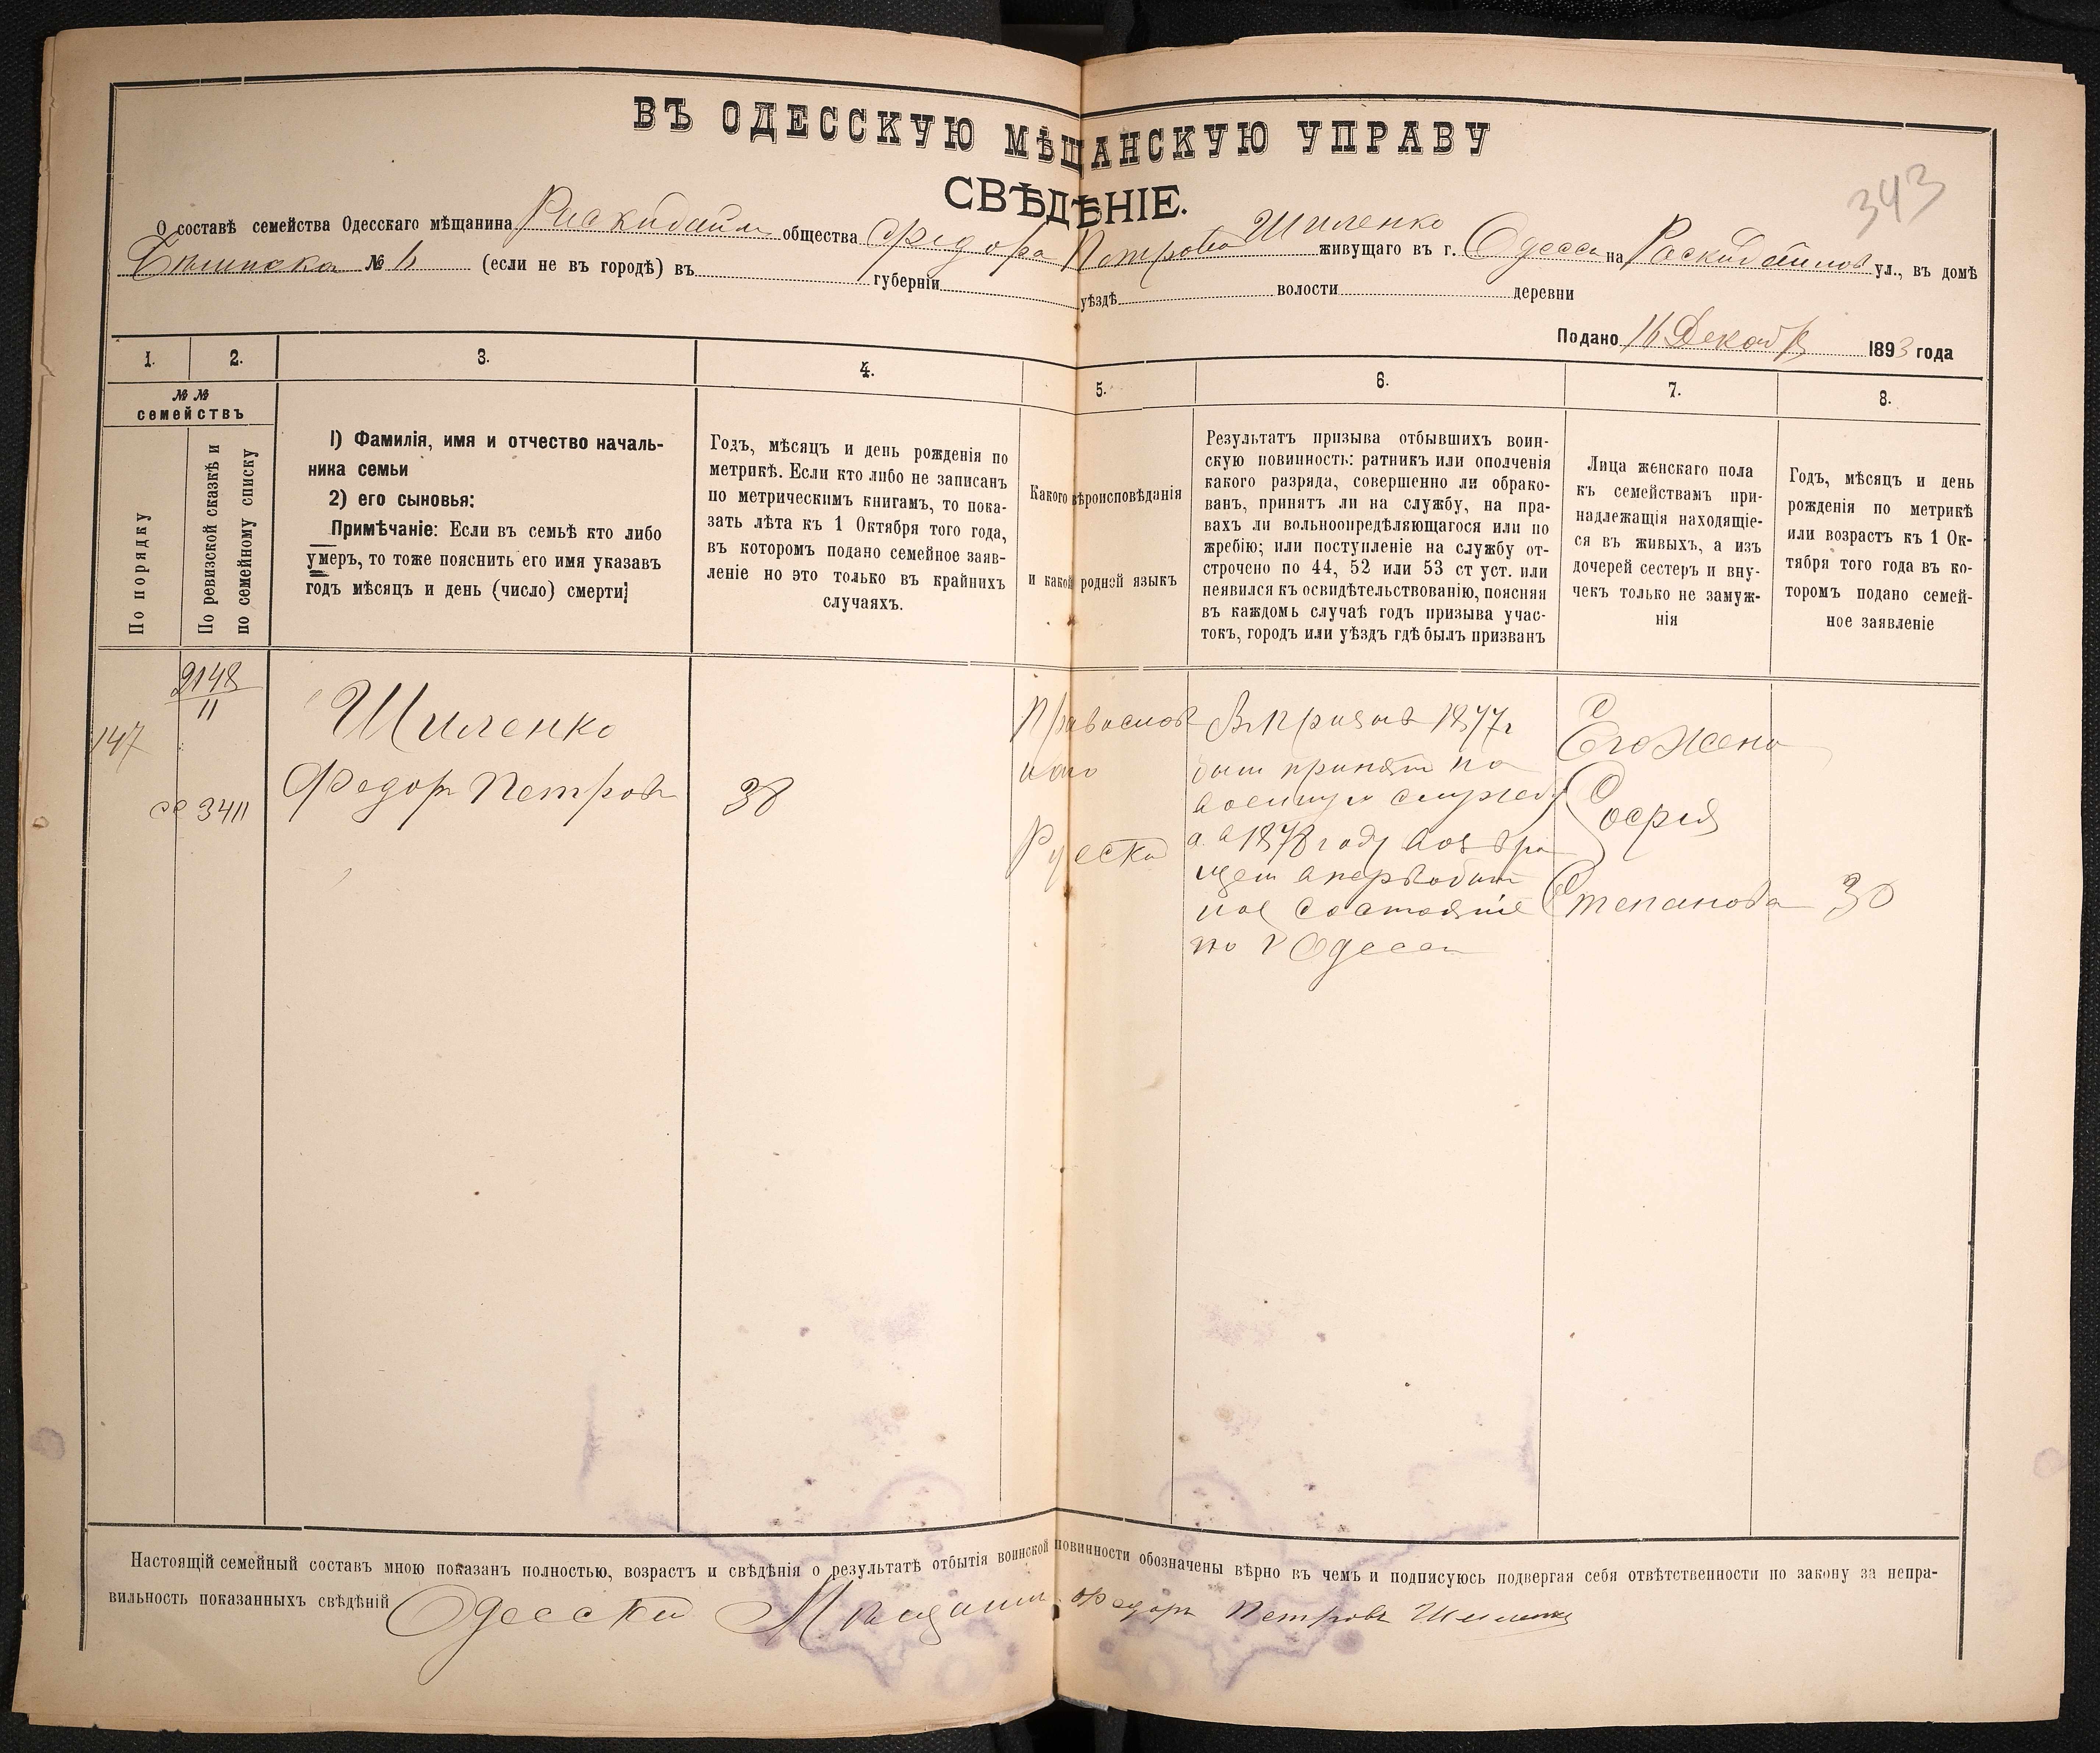 ВЪ ОДЕССКУЮ МѢЩАНСКУЮ УПРАВУ
СВѢДѢНІЕ.
343
О составѣ семейства Одесскаго мѣщанина Раскидайл общества Федора Петрова Шиленко живущаго въ г. Одесса на Раскидайлов ул., въ домѣ
№ (если не въ городѣ) въ губерніи уѣздѣ волости деревни
Подано 16 Декабр 1893 года
1. 2. 3. 4. 5. 6. 7. 8.
№ №
семействъ
По порядку
По ревизской сказкѣ и
по семейному списку
1) Фамилія, имя и отчество началь-
ника семьи
2) его сыновья:
Примѣчаніе: Если въ семьѣ кто либо
умеръ, то тоже пояснить его имя указавъ
годъ мѣсяцъ и день (число) смерти;
Годъ, мѣсяцъ и день рожденія по
метрикѣ. Если кто либо не записанъ
по метрическимъ книгамъ, то пока-
зать лѣта къ 1 Октября того года,
въ которомъ подано семейное заяв-
леніе но это только въ крайнихъ
случаяхъ.
Какого вѣроисповѣданія
и какой родной языкъ
Результатъ призыва отбывшихъ воин-
скую повинность: ратникъ или ополченія
какого разряда, совершенно ли обрако-
ванъ, принятъ ли на службу, на пра-
вахъ ли вольноопредѣляющагося или по
жребію; или поступленіе на службу от-
строчено по 44, 52 или 53 ст уст. или
неявился къ освидѣтельствованію, поясняя
въ каждомъ случаѣ годъ призыва учас-
токъ, городъ или уѣздъ гдѣ былъ призванъ
Лица женскаго пола
къ семействамъ при-
надлежащія находящіе-
ся въ живыхъ, а изъ
дочерей сестеръ и вну-
чекъ только не замуж-
нія
Годъ, мѣсяцъ и день
рожденія по метрикѣ
или возрастъ къ 1 Ок-
тября того года въ ко-
торомъ подано семей-
ное заявленіе
147
2148
11
3411
Шиленко
Федоръ Петровъ
38
Православ
Руски
Въ призывъ 1877 г
былъ принятъ на
военную службу
а в 1878 году возвра
щен в первобыт
ное состояніе
по г Одесса
Его Жена
София
Степанова
30
Настоящій семейный составъ мною показанъ полностью, возрастъ и свѣдѣнія о результатѣ отбытія воинской повинности обозначены вѣрно въ чемъ и подписуюсь подвергая себя отвѣтственности по закону за непра-
вильность показанныхъ свѣдѣній Одески Мещанин Федоръ Петровъ Шиленко